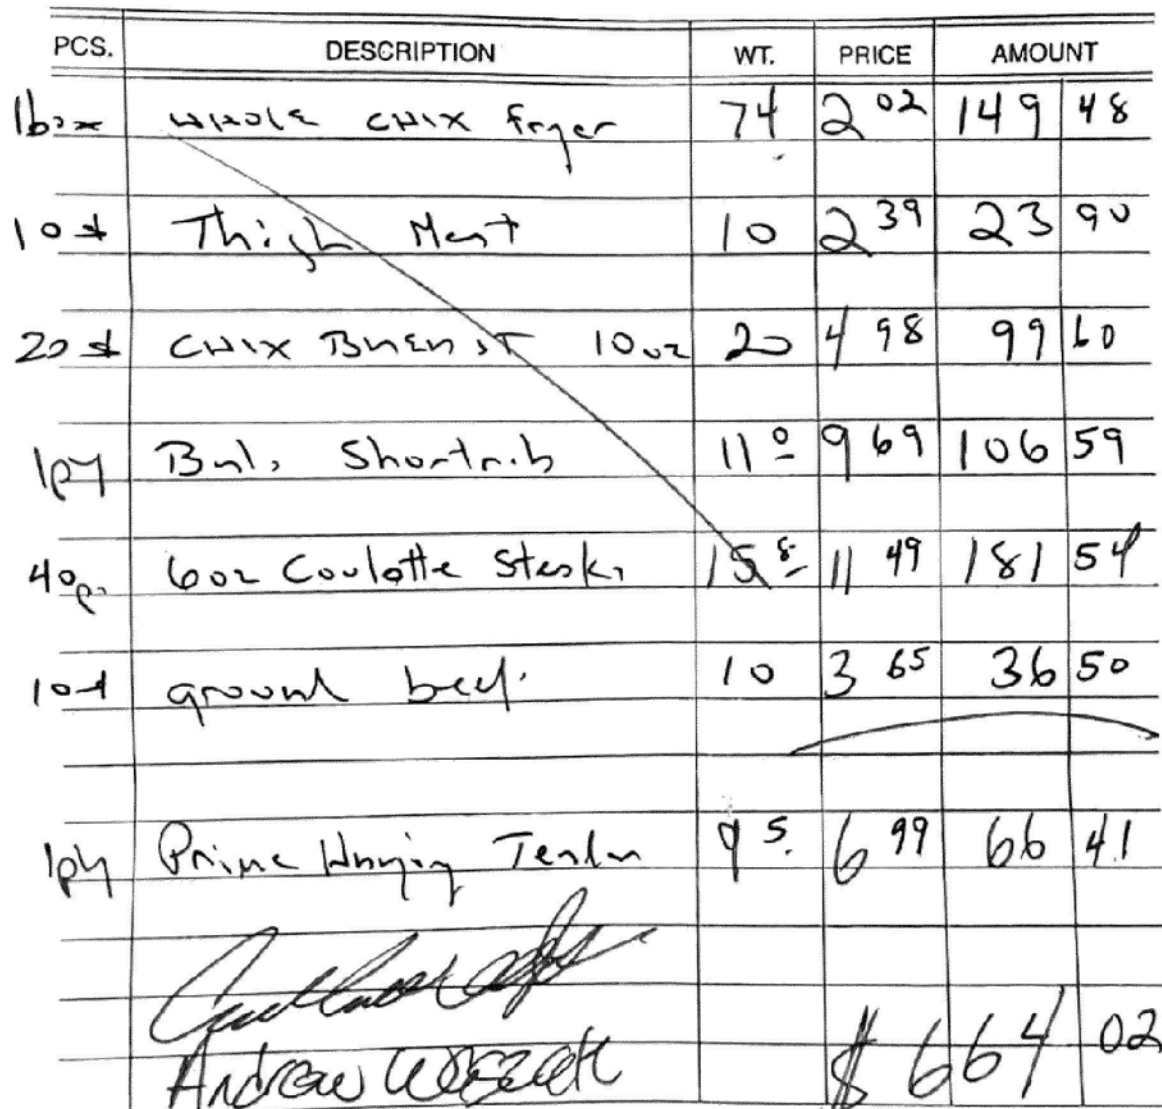 PCS. DESCRIPTION WT. PRICE AMOUNT
1box WHOLE CHIX Fryer 74 2 02 149 48
10# Thigh Meat 10 2 39 23 90
20# CHIX BREAST 10oz 20 4 98 99 60
1p4 Bnls Shortrib 11 0 9 69 106 59
40pc 6oz Coulotte Steaks 15 8 11 49 181 54
10# ground beef. 10 3 65 36 50
1p4 Prime Hanging Tender 9 5. 6 99 66 41
Andrew
$ 664 02